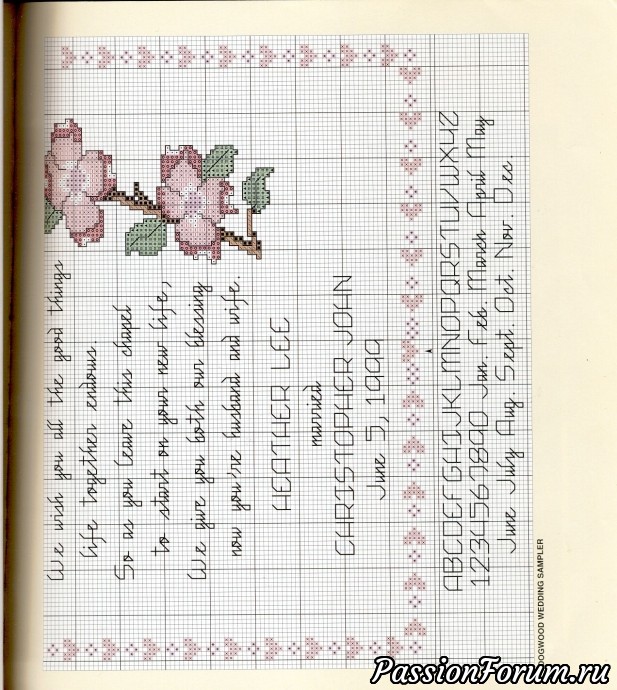 We wish you all the good things
life together endows.
So as you leave this chapel
to start on your new life,
We give you both our blessing
now you're husband and wife.
HEATHER LEE
married
CHRISTOPHER JOHN
June 5, 1999
ABCDEFGHIJKLMNOPQRSTUVWXYZ
1234567890 Jan. Feb. March April May
June July Aug. Sept. Oct. Nov. Dec.
DOGWOOD WEDDING SAMPLER
PassionForum.ru